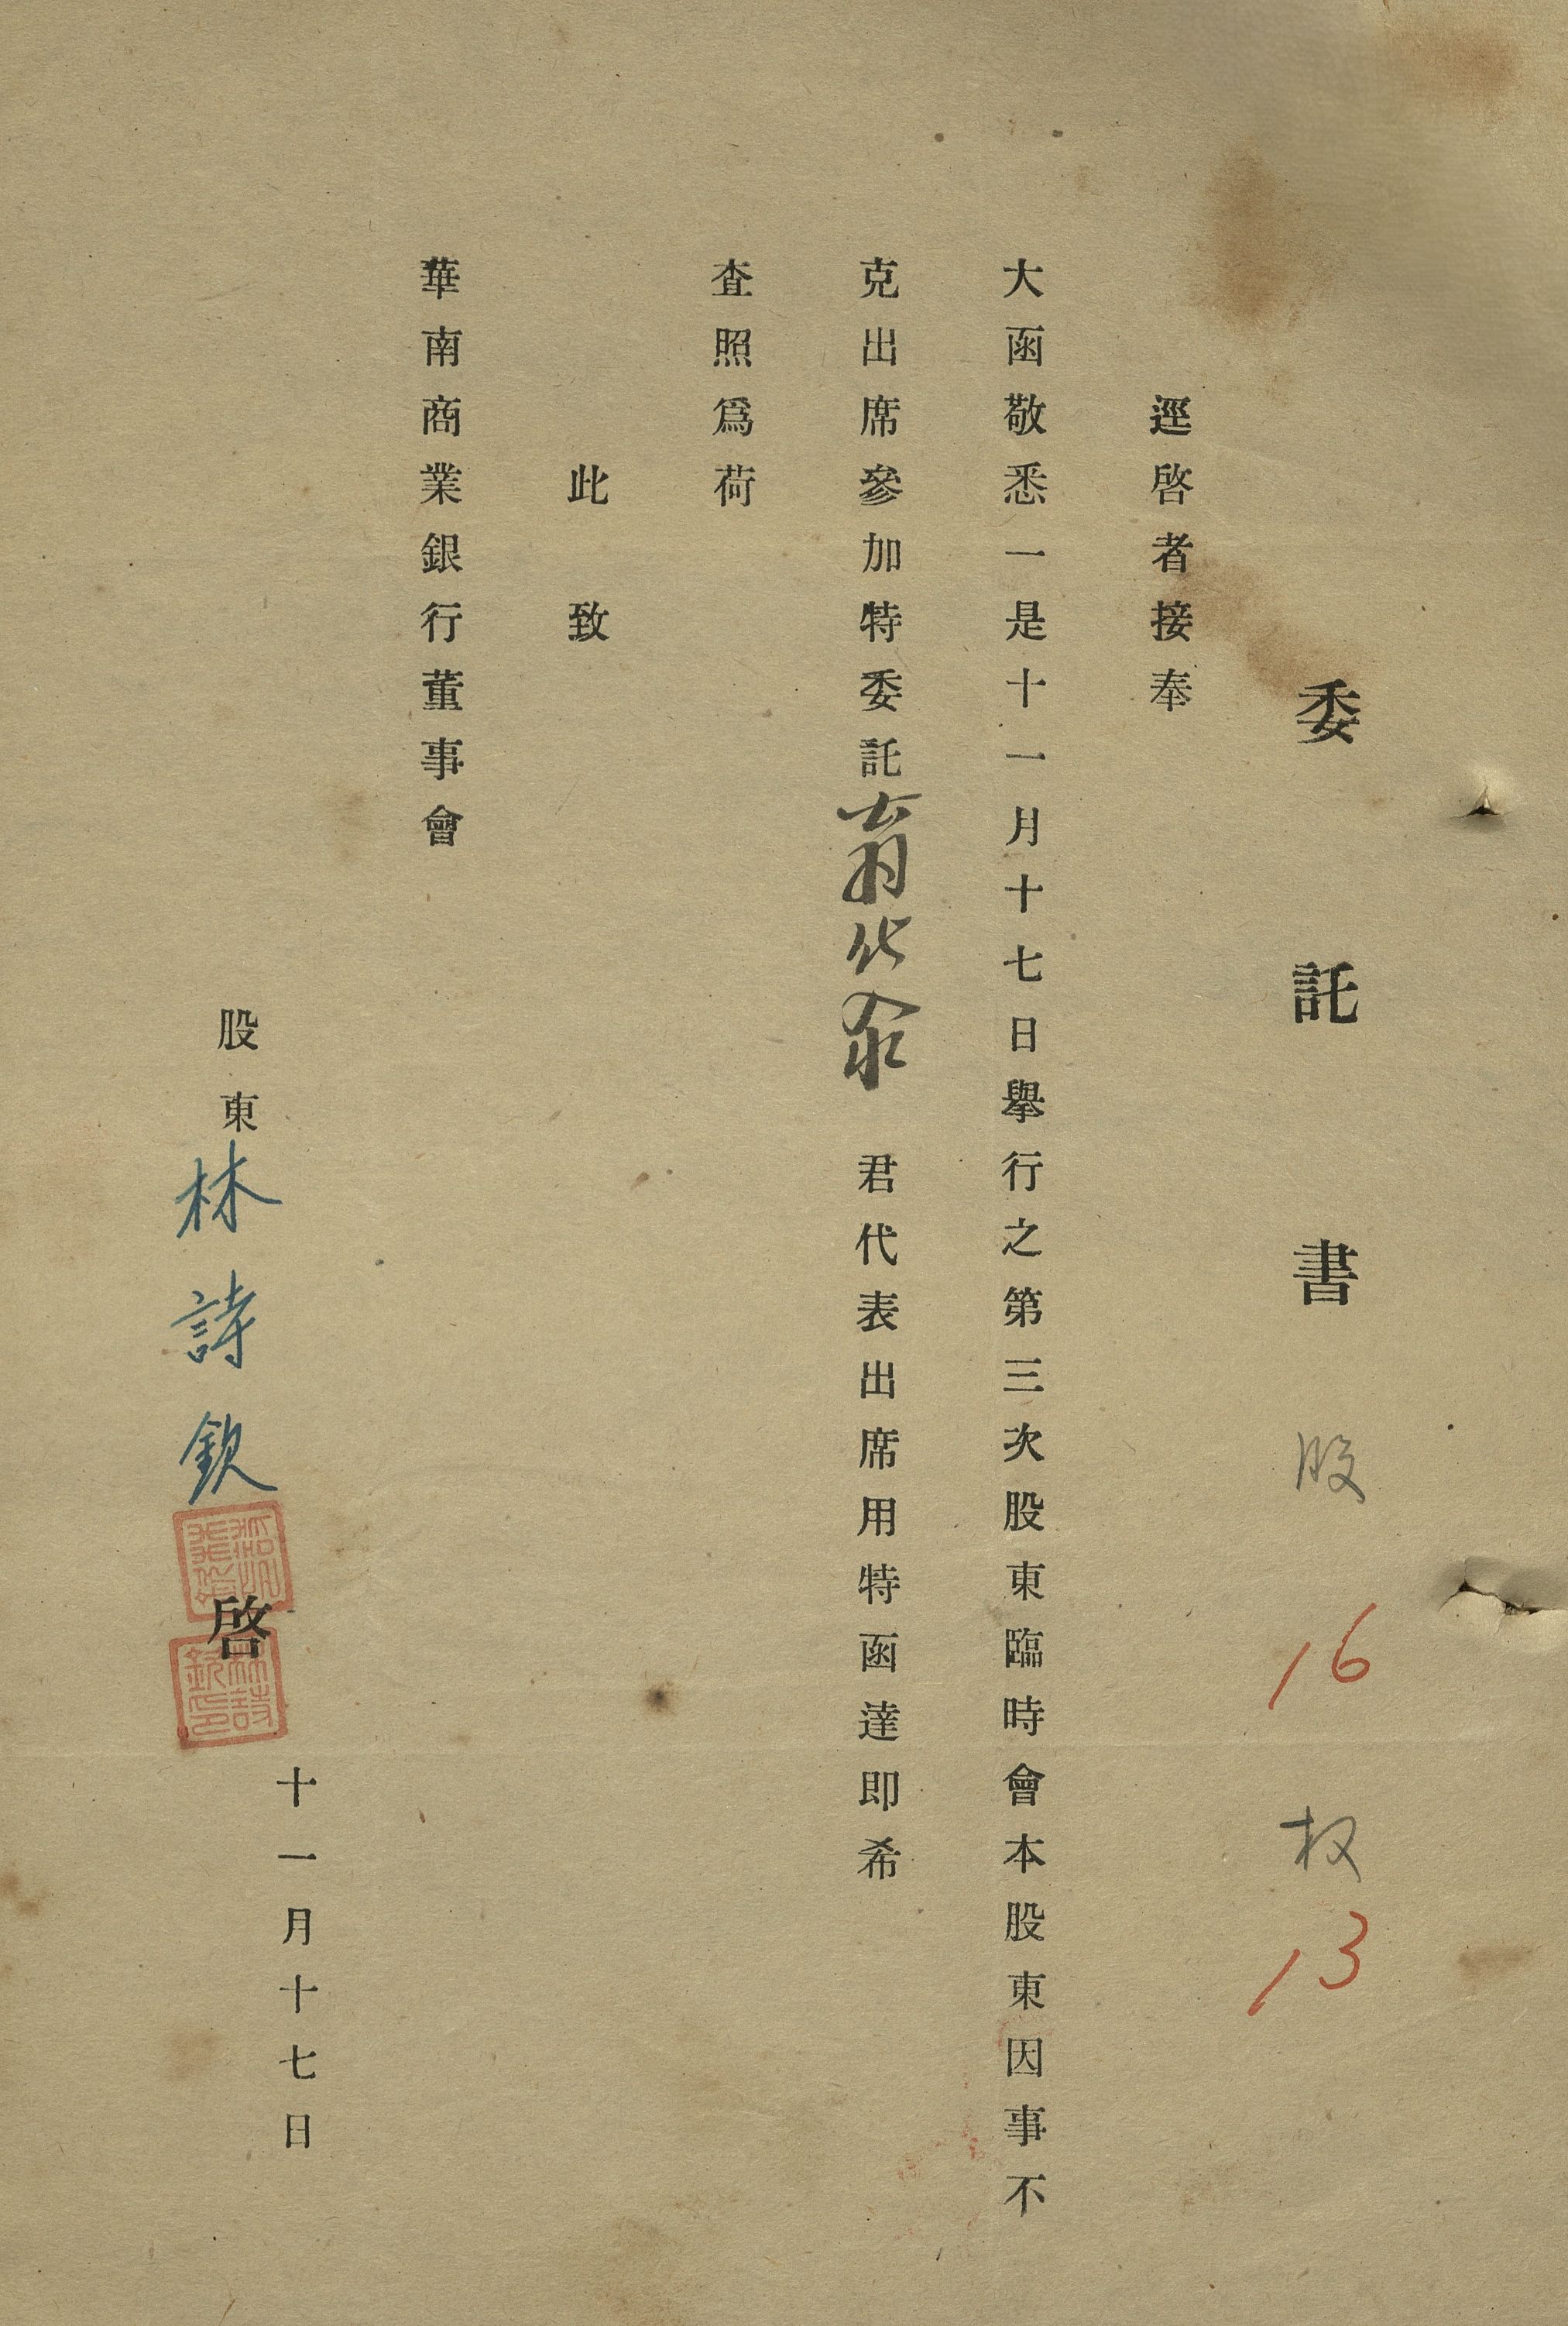 委託書 股 16 权 13
逕啓者接奉
大函敬悉一是十一月十七日舉行之第三次股東臨時會本股東因事不
克出席參加特委託 君代表出席用特函達即希
查照爲荷
此致
華南商業銀行董事會
股東林詩欽 啓
林詩欽印
十一月十七日